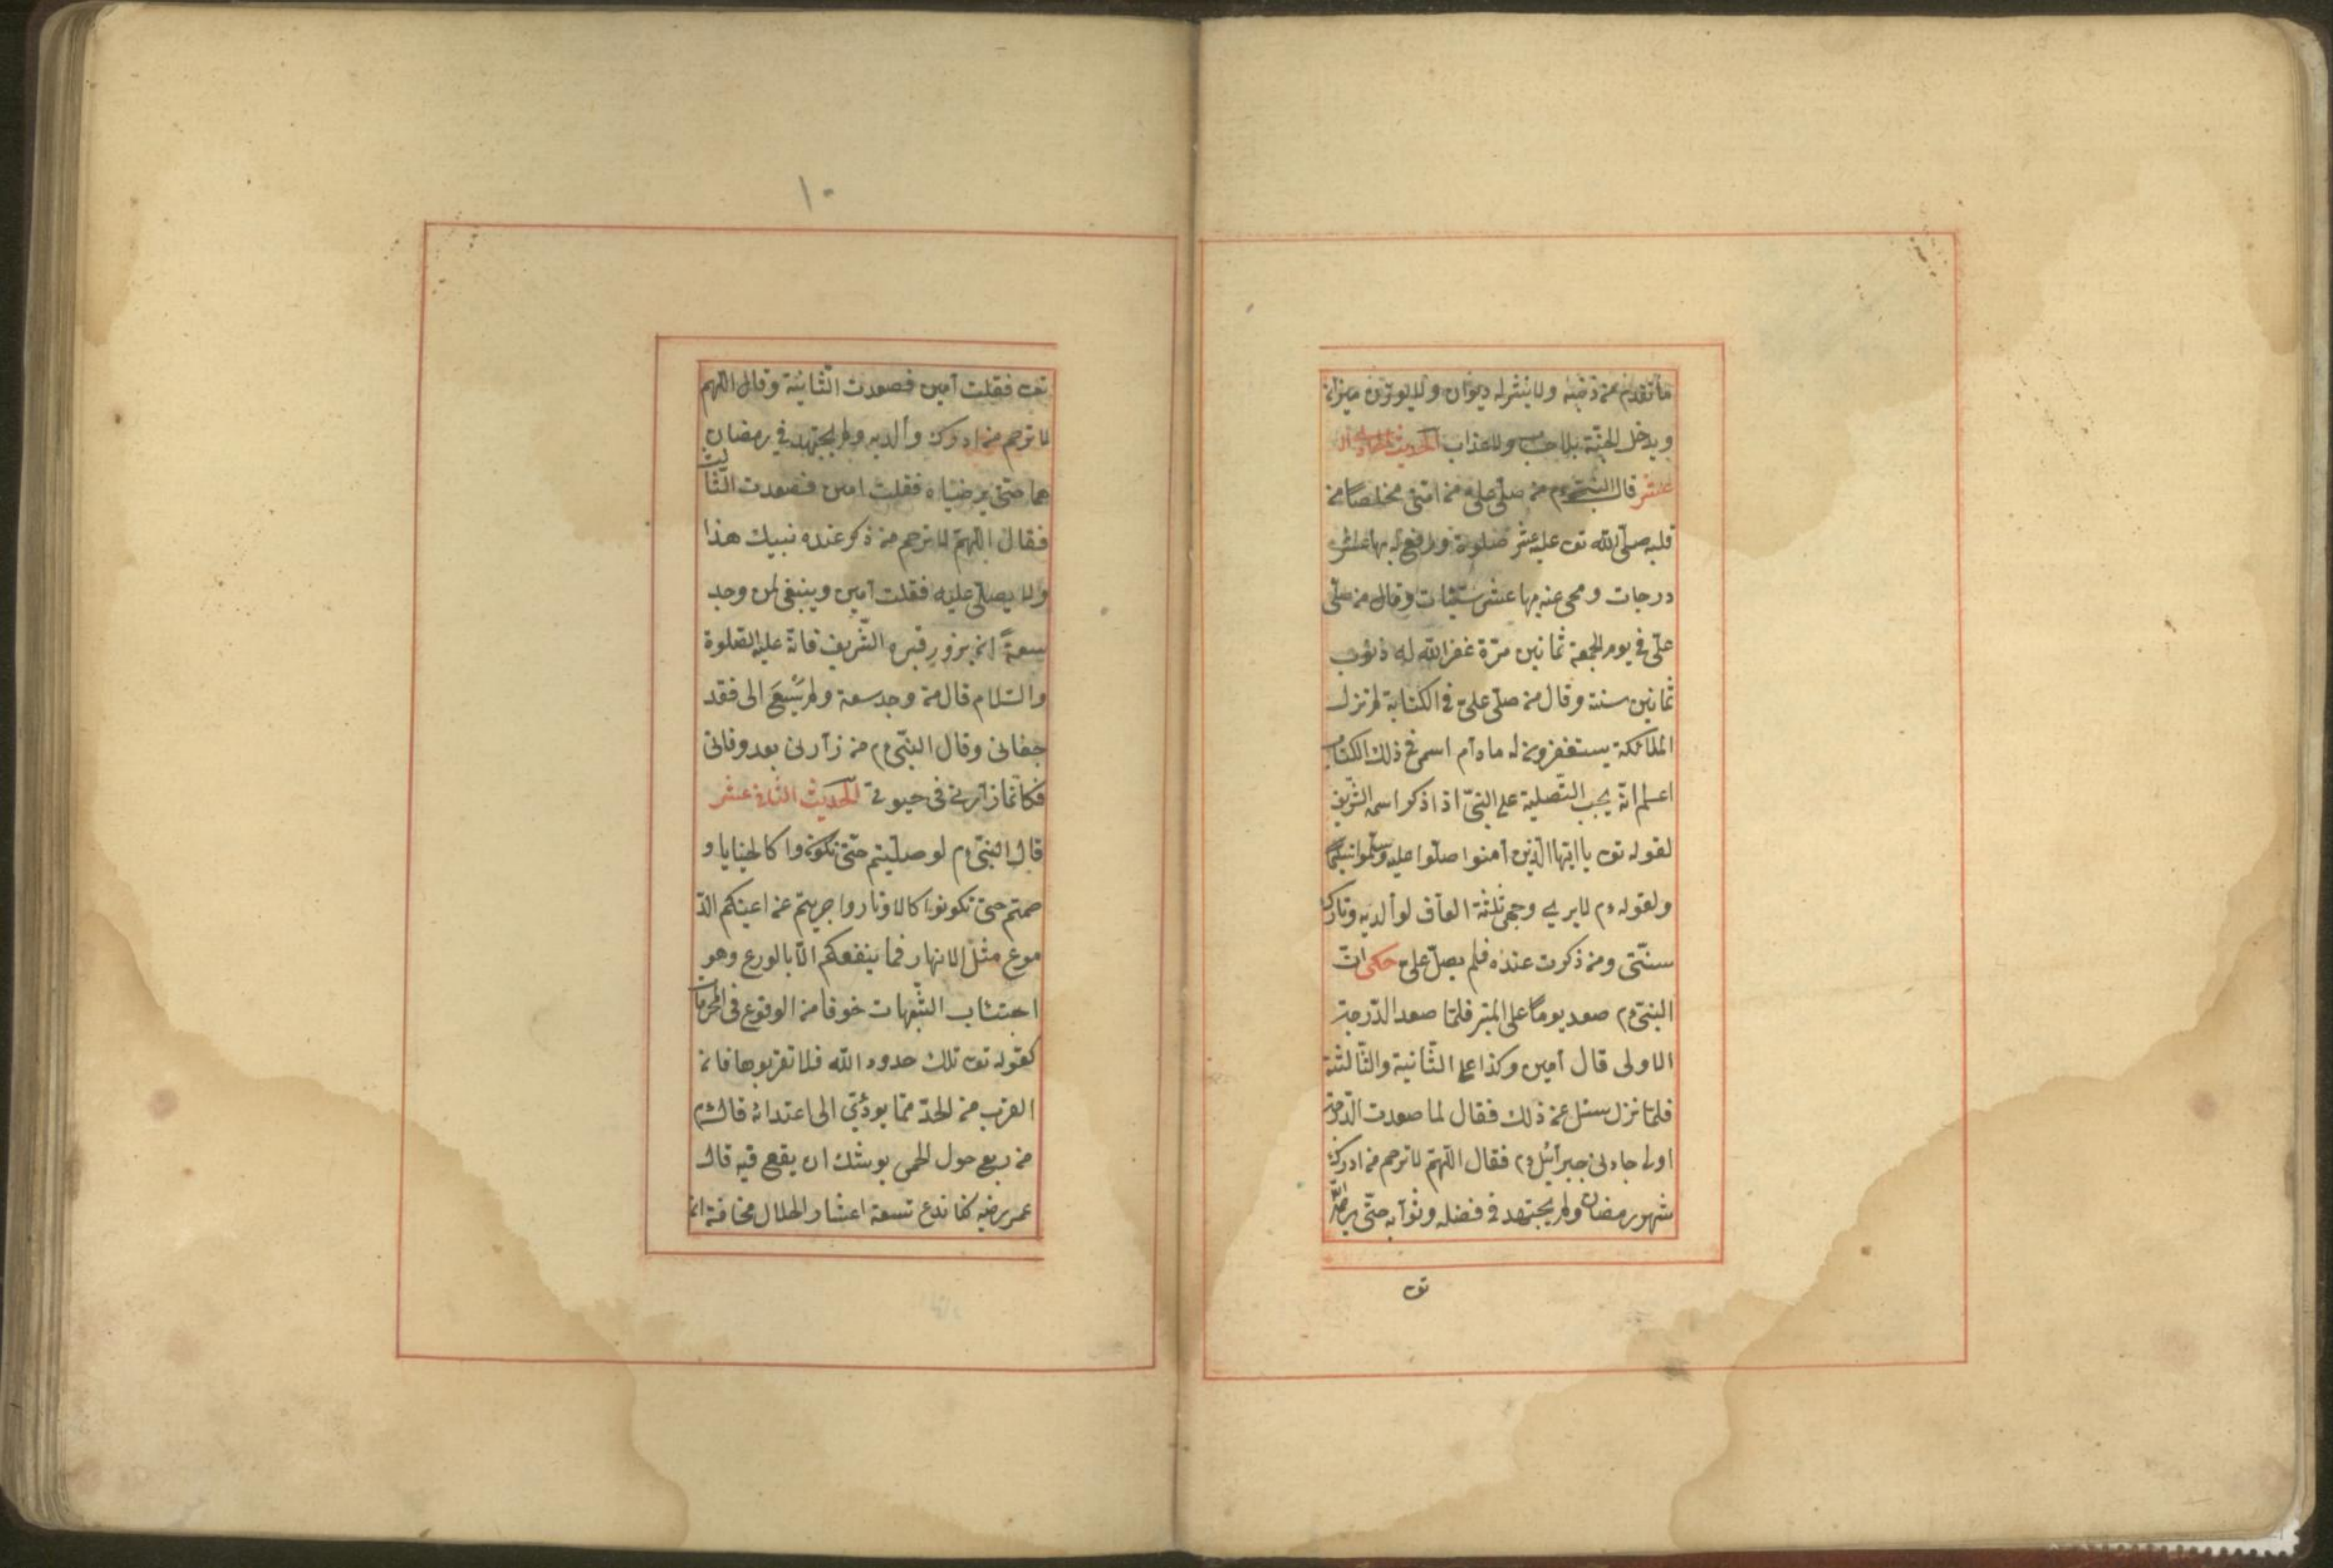 ما تقدم من ذنبه ولا ينشر له ديوان ولا يوزن ميزان
ويدخل الجنة بلا حساب ولا عذاب الحديث الحادى
عشر قال النبى م من صلى على من امتى مخلصا من
قلبه صلى الله تعـ عليه عشر صلوة ورفع له بها عشر
درجات ومحى عنه بها عشر سيئات وقال من صلى
على فى يوم الجمعة ثمانين مرة غفر الله له ذنوب
ثمانين سنة وقال من صلى على فى الكتابة لم تزل
الملائكة يستغفرون له مادام اسمى فى ذلك الكتاب
اعلم انه يجب التصلية على النبى اذا ذكر اسمه الشريف
لقوله تعـ يا ايها الذين آمنوا صلوا عليه وسلموا تسليما
ولقوله م لا يرى وجهى ثلثة العاق لوالديه وتارك
سنتى ومن ذكرت عنده فلم يصل على حكى ان
النبى م صعد يوما على المنبر فلما صعد الدرجة
الاولى قال آمين وكذا على الثانية والثالثة
فلما نزل سئل عن ذلك فقال لما صعدت الدرجة
اولى جاءنى جبرآئيل م فقال اللهم لا ترحم من ادرك
شهر رمضان ولم يجتهد فى فضله وثوآبه حتى يرضى الله
تعـ
١٠
تعـ فقلت آمين فصعدت الثانية وقال اللهم
لا ترحم من ادرك وآلديه ولم يجتهد فى رمضان
هما حتى يرضياه فقلت امين فصعدت الثالث
فقال اللهم لا ترحم من ذكر عنده نبيك هذا
ولا يصلى عليه فقلت آمين وينبغى لمن وجد
سعة ان يزور قبره الشريف فانه عليه الصلوة
والسلام قال من وجد سعة ولم يسع الى فقد
جفانى وقال النبى م من زآرنى بعد وفاتى
فكانما زآرنى فى حيوتى الحديث الثانى عشر
قال النبى م لو صليتم حتى تكونوا كالحنايا و
صمتم حتى تكونوا كالاوتار واجريتم من اعينكم الد
موع مثل الانهار فما ينفعكم الا بالورع وهو
اجتناب الشبهات خوفا من الوقوع فى المحرمات
كقوله تعـ تلك حدود الله فلا تقربوها فان
القرب من الحد مما يودى الى اعتدائه قال م
من ربع حول الحمى يوشك ان يقع فيه قال
عمر رضيه كنا ندع تسعة اعشار الحلال مخافة ان